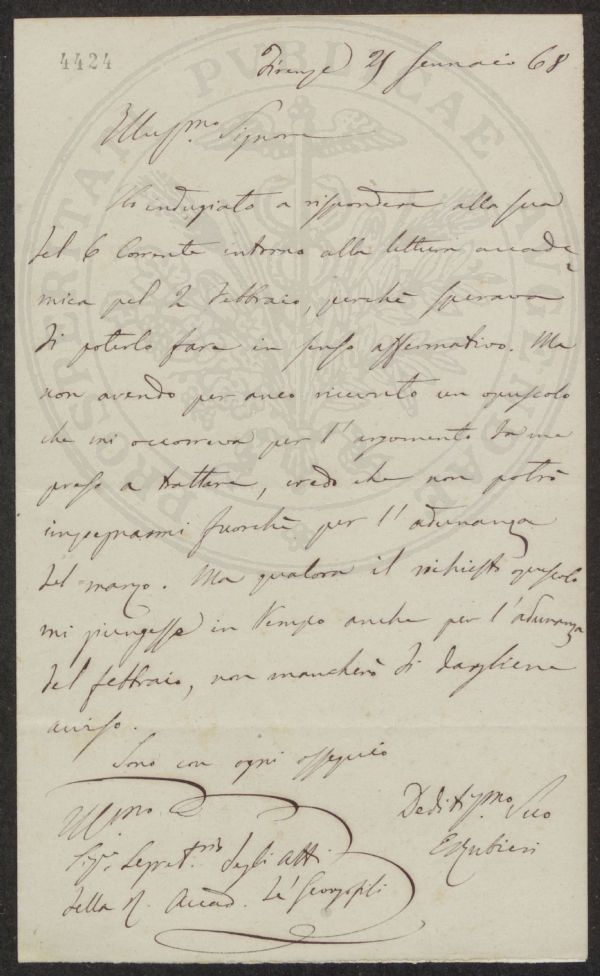 4424
Firenze 21 Gennaio 68
Illusmo Signore
Ho indugiato a rispondere alla sua
del 6 Corrente intorno alla lettura accade-
mica pel 2 Febbraio, perchè sperava
di poterlo fare in senso affermativo. Ma
non avendo per anco ricevuto un opuscolo
che mi occorreva per l'argomento da me
preso a trattare, credo che non potrò
impegnarmi fuorchè per l'adunanza
del marzo. Ma qualora il richiesto opuscolo
mi giungesse in tempo anche per l'adunanza
del febbraio, non mancherò di dargliene
avviso.
Sono con ogni ossequio
Deditissmo Suo
ERubieri
Illmo
Sigr. Segretrio degli Atti
della R. Accad. de' Georgofili
PROSPERITATI PVBLICAE AVGENDAE